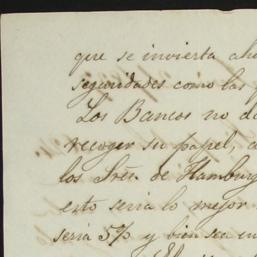 que se invierta
seguridades como las
Los Bancos no
recoger su papel,
los Sres. de Hamburg
esto seria lo mejor
seria 5% y bien sea en